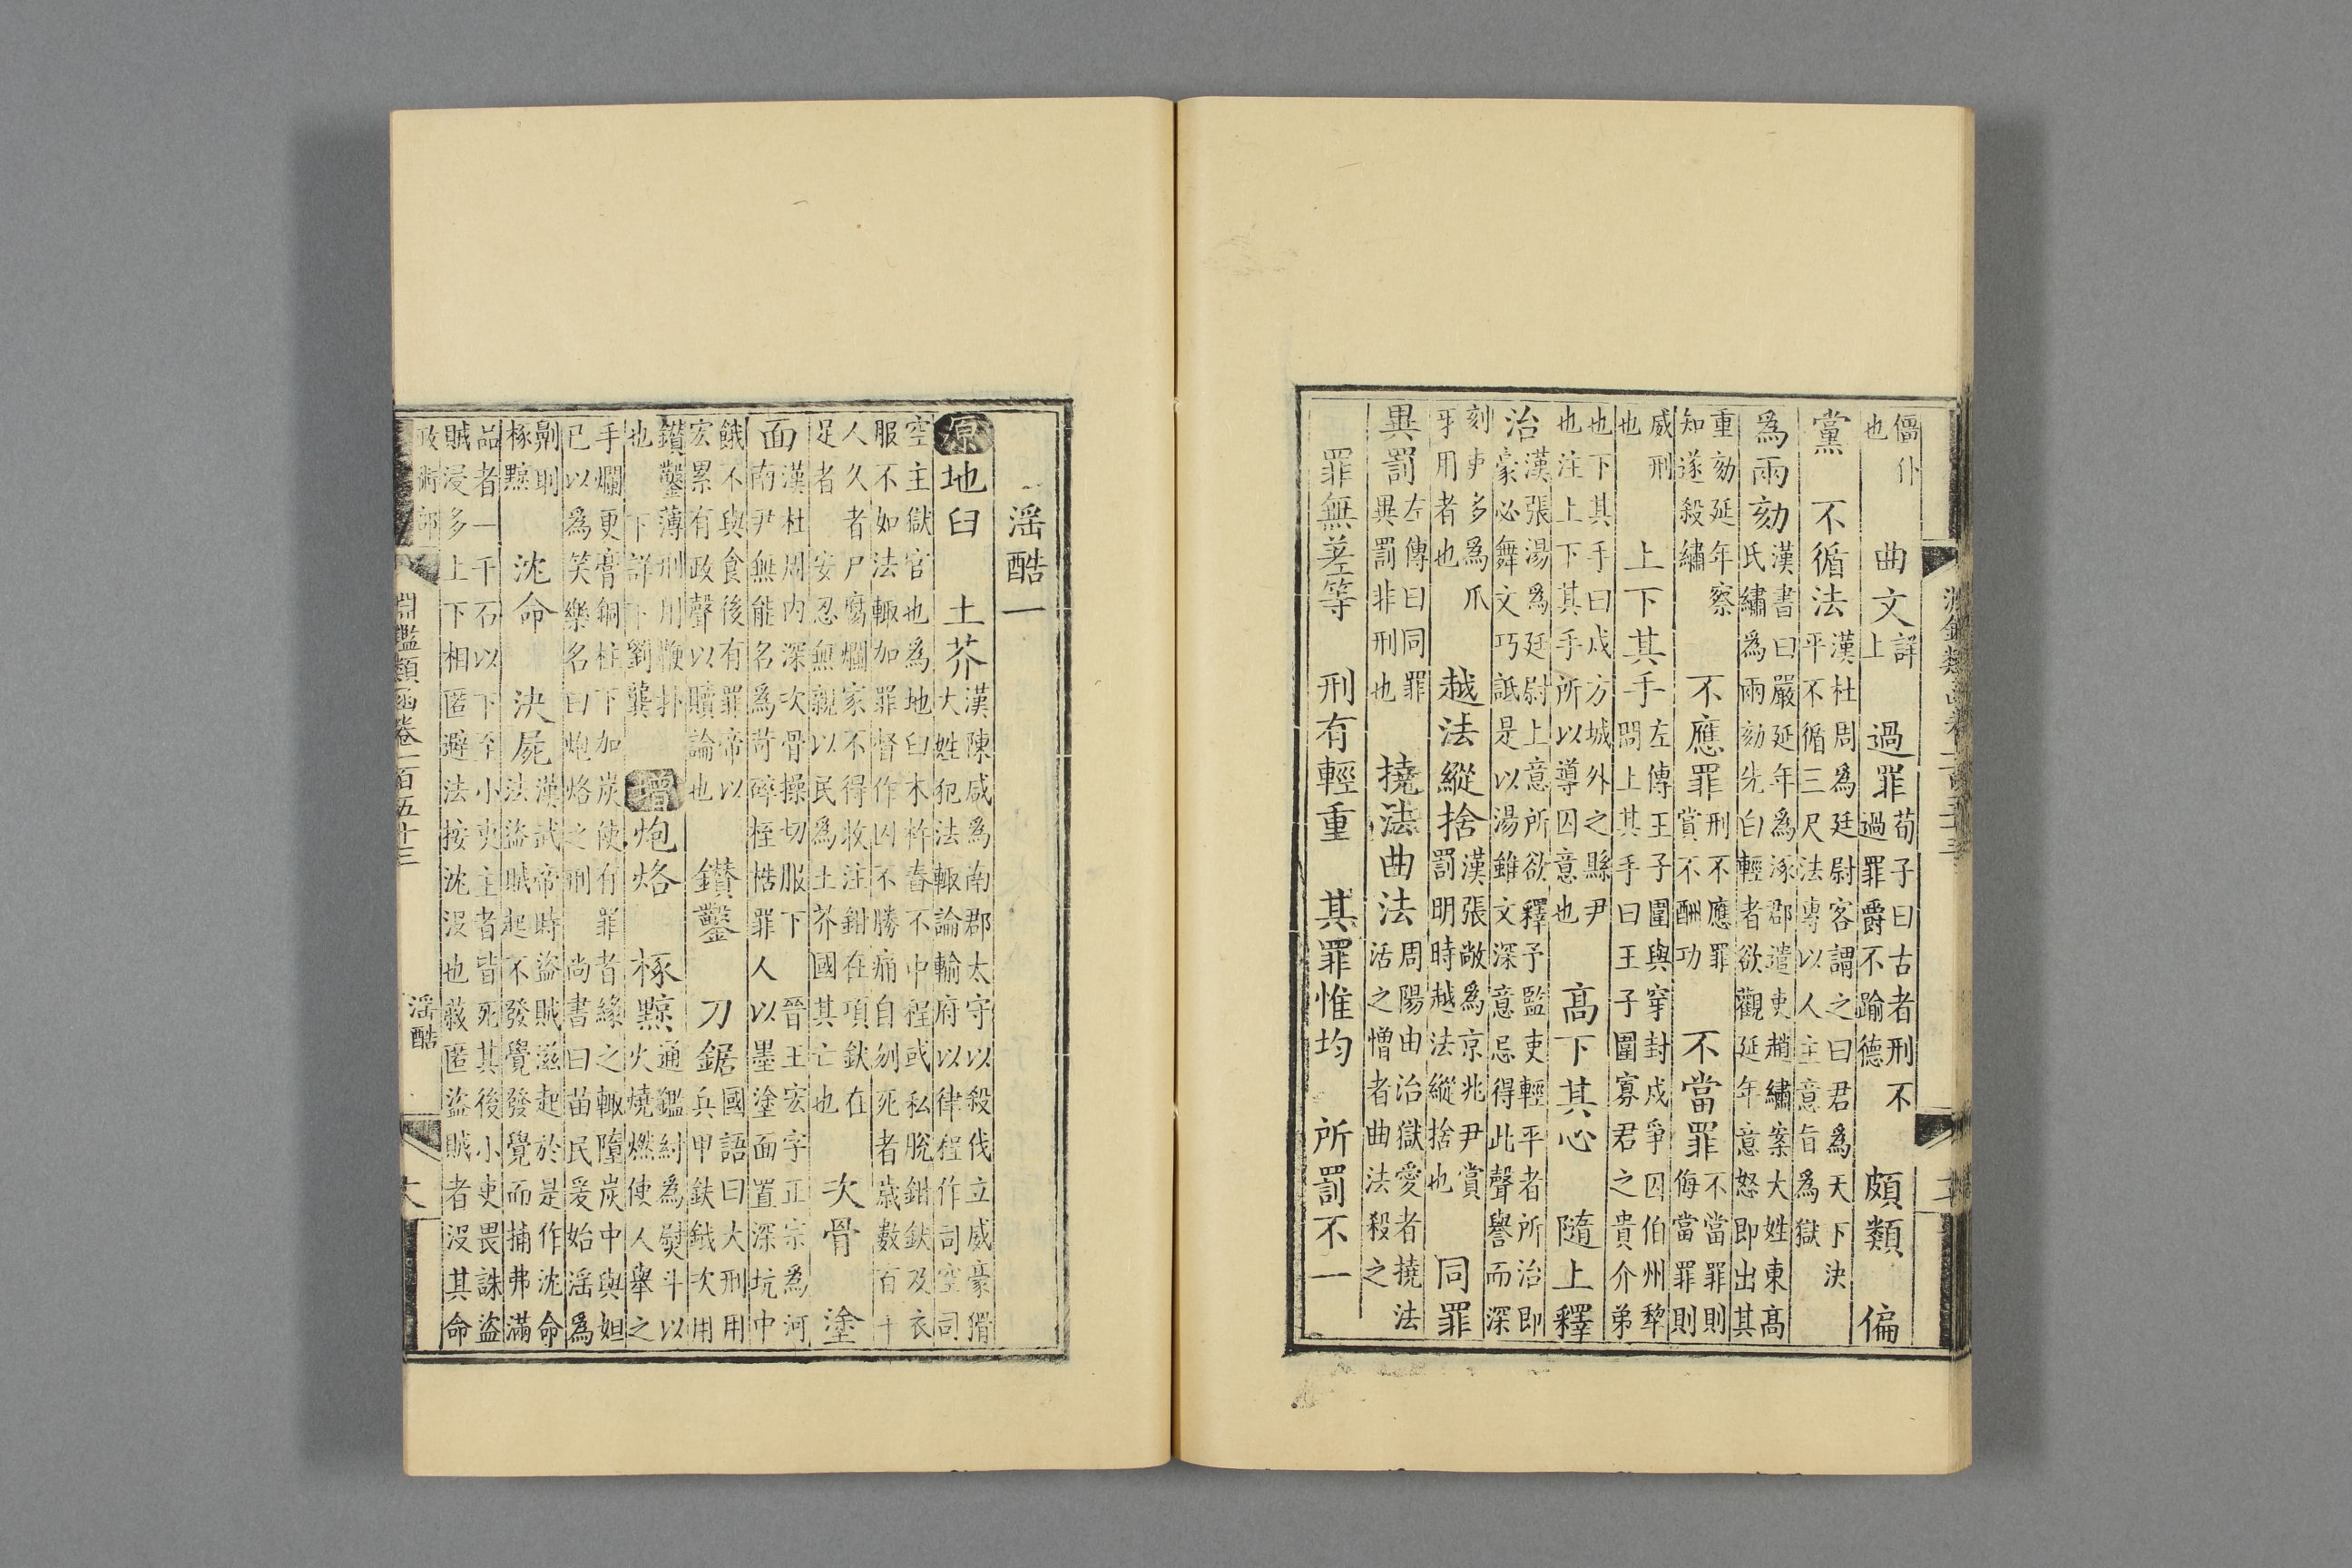 僵仆也　曲文詳上　過罪荀子曰古者刑不過罪爵不踰德　頗類　偏
黨　不循法漢杜周爲廷尉客謂之曰君爲天下決平不循三尺法專以人主意旨爲獄
爲兩劾漢書曰嚴延年爲涿郡遣吏趙繡案大姓東高氏繡爲兩劾先白輕者欲觀延年意怒即出其
重劾延年察知遂殺繡　不應罪刑不應罪賞不酬功　不當罪不當罪則侮當罪則
威刑也　上下其手左傳王子圍與穿封戍爭囚伯州犂問上其手曰王子圍寡君之貴介弟
也下其手曰戍方城外之縣尹也注上下其手所以導囚意也　高下其心　隨上釋
治漢張湯爲廷尉上意所欲釋予監吏輕平者所治即豪必舞文巧詆是以湯雖文深意忌得此聲譽而深
刻吏多爲爪牙用者也　越法縱捨漢張敞爲京兆尹賞罰明時越法縱捨也　同罪
異罰左傳曰同罪異罰非刑也　撓法曲法周陽由治獄愛者撓法活之憎者曲法殺之
罪無差等　刑有輕重　其罪惟均　所罰不一
淫酷一
原地臼　土芥漢陳咸爲南郡太守以殺伐立威豪猾大姓犯法輒論輸府以律程作司空司
空主獄官也爲地臼木杵舂不中程或私脫鉗釱及衣服不如法輒加罪督作囚不勝痛自刎死者歲數百千
人久者尸腐爛家不得收注鉗在項釱在足者　安忍無親以民爲土芥國其亡也　次骨　塗
面漢杜周內深次骨操切服下　晉王宏字正宗爲河南尹無能名爲苛碎桎梏罪人以墨塗面置深坑中
餓不與食後有罪帝以宏累有政聲以贖論也　鑽鑿　刀鋸國語曰大刑用兵甲鈇鉞次用
鑽鑿薄刑用鞭扑也　下詳下劉龔　增炮烙　椓黥通鑑紂爲熨斗以火燒燃使人舉之
手爛更膏銅柱下加炭使有罪者緣之輒墮炭中與妲己以爲笑樂名曰炮烙之刑　尚書曰苗民爰始淫爲
劓刵椓黥　沈命　決屍漢武帝時盜賊滋起於是作沈命法盜賊起不發覺發覺而捕弗滿
品者二千石以下至小吏主者皆死其後小吏畏誅盜賊浸多上下相匿避法按沈沒也蔽匿盜賊者沒其命
政術部　淵鑑類函卷一百五十三　淫酷